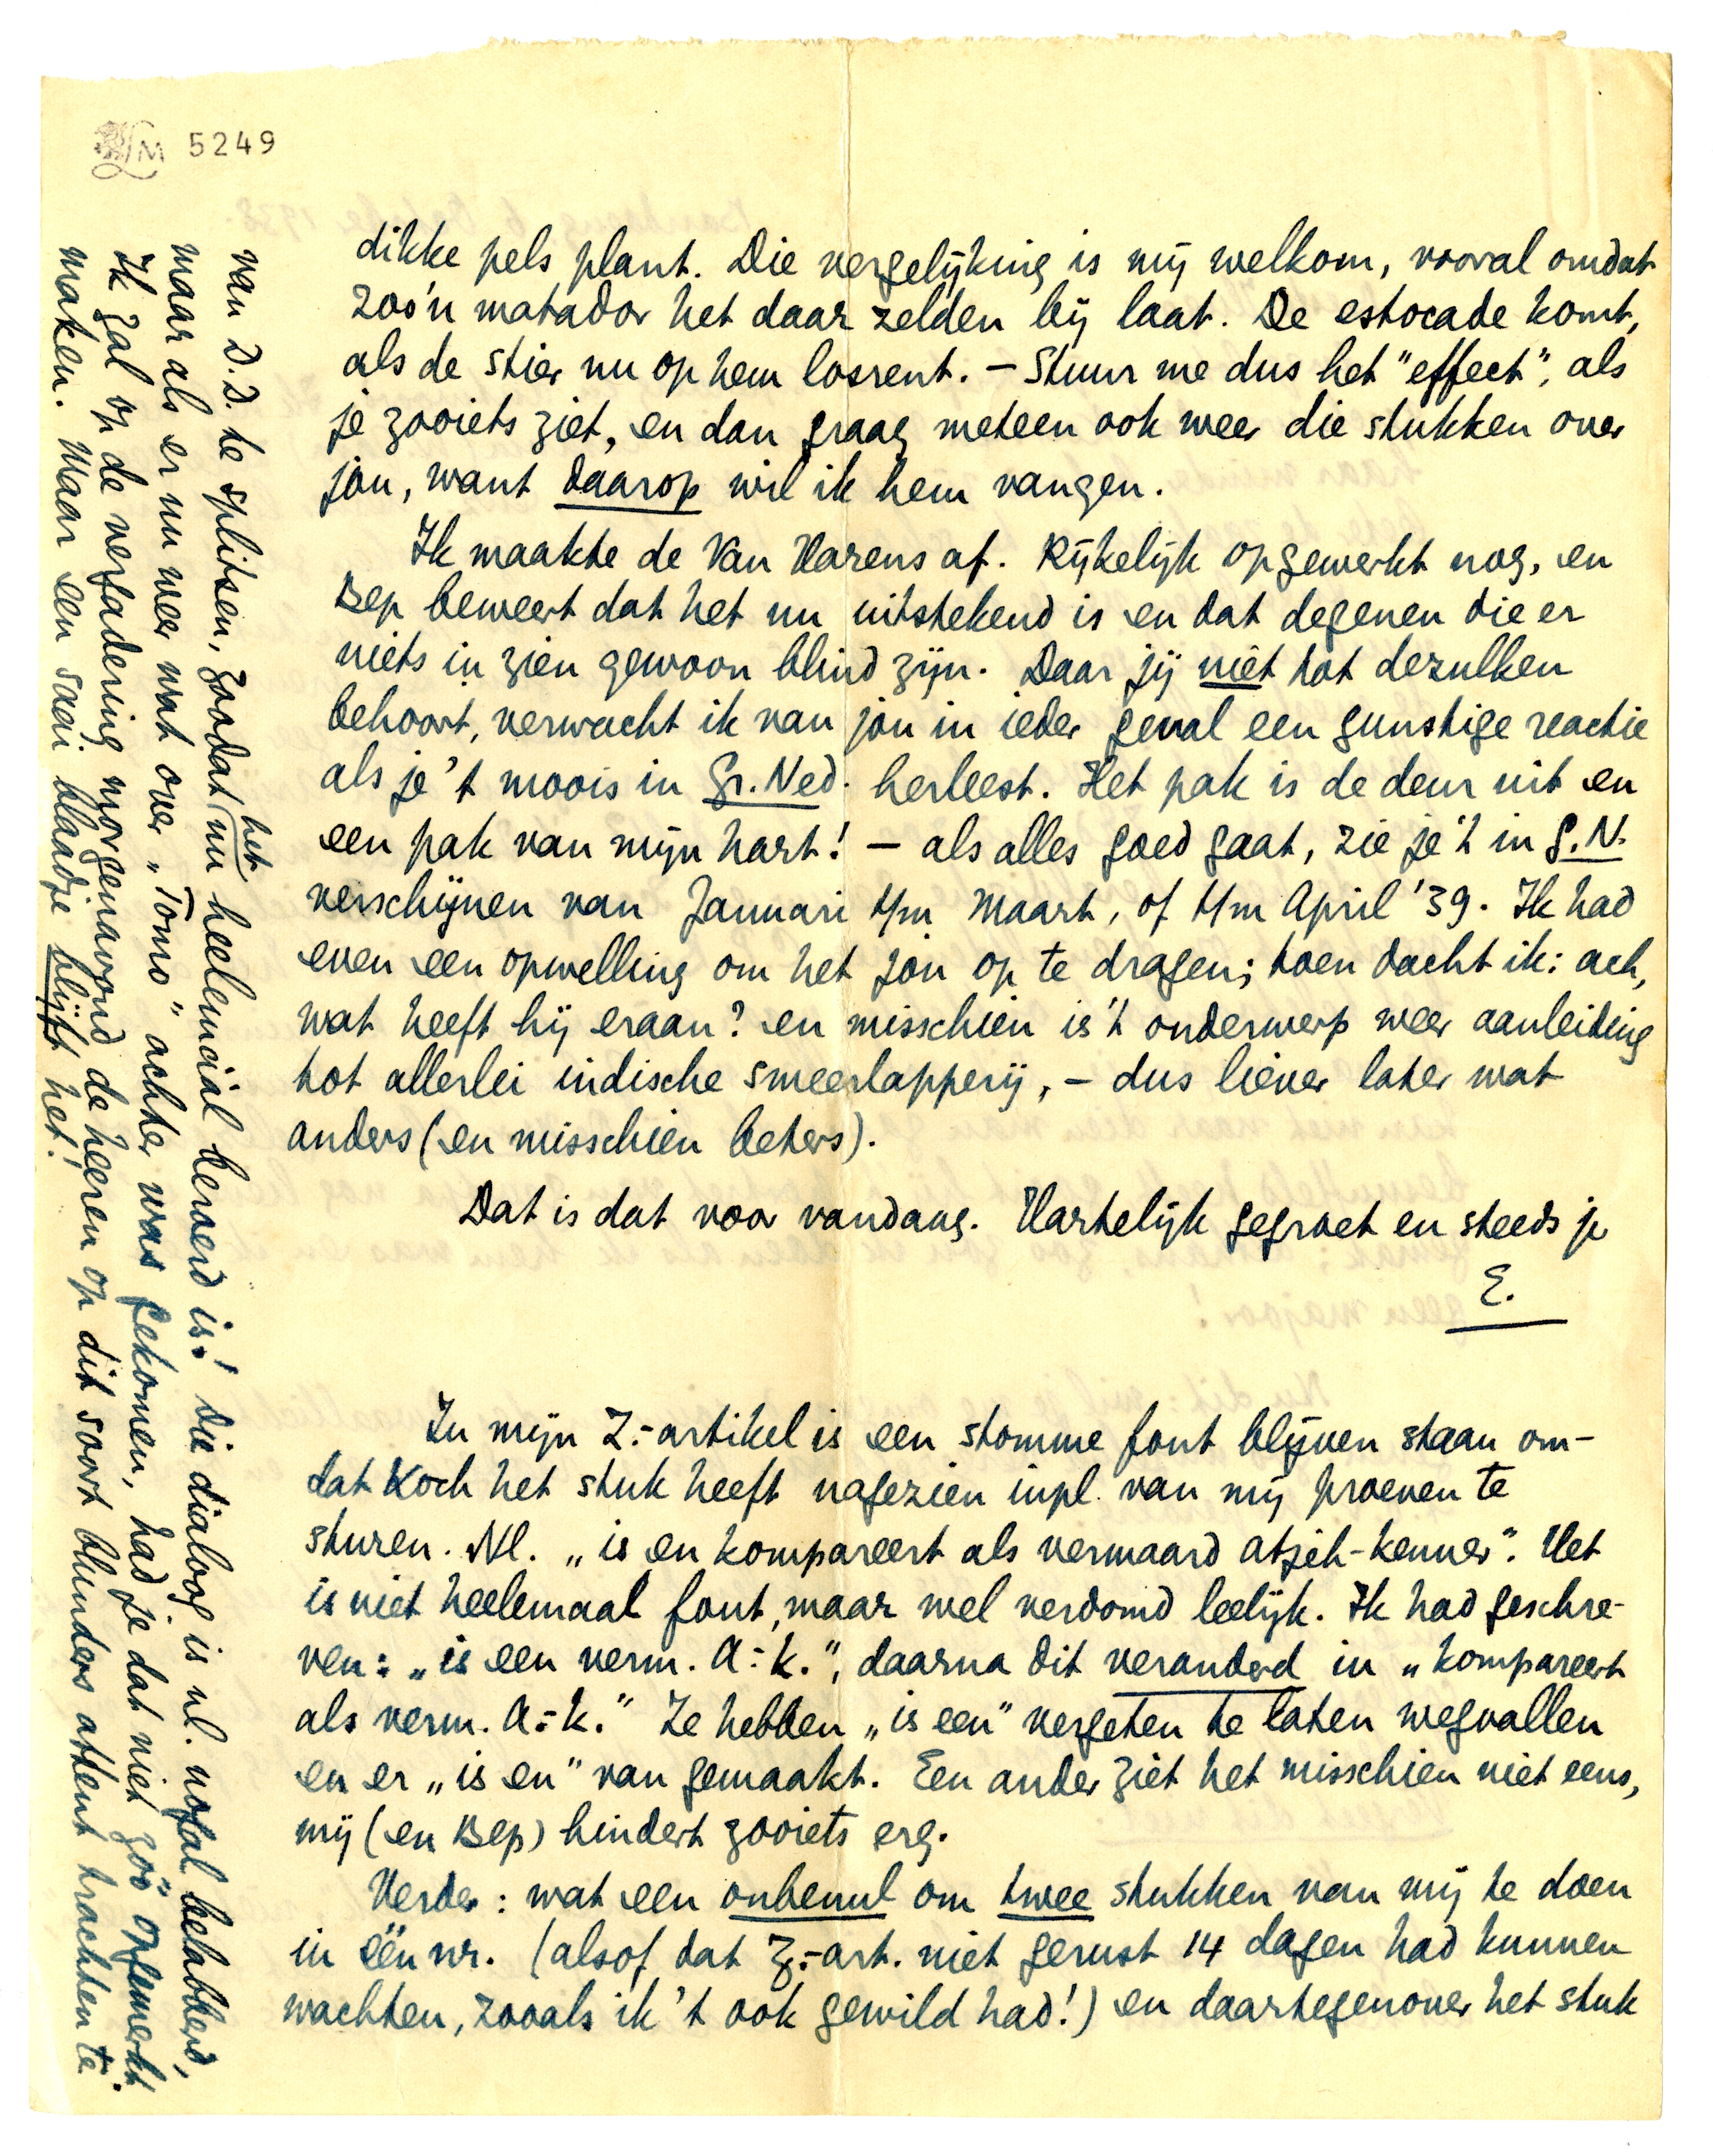 LM 5249
dikke pels plant. Die vergelijking is mij welkom, vooral omdat
zoo'n matador het daar zelden bij laat. De estocade komt,
als de stier nu op hem losrent. – Stuur me dus het "effect", als
je zooiets ziet, en dan graag meteen ook weer die stukken over
jou, want daarop wil ik hem vangen.
Ik maakte de Van Harens af. Rijkelijk opgewerkt nog, en
Bep beweert dat het nu uitstekend is en dat degenen die er
niets in zien gewoon blind zijn. Daar jij niet tot dezulken
behoort, verwacht ik van jou in ieder geval een gunstige reactie
als je 't moois in Gr. Ned. herleest. Het pak is de deur uit en
een pak van mijn hart! – als alles goed gaat, zie je 't in G.N.
verschijnen van Januari t/m Maart, of t/m April '39. Ik had
even een opwelling om het jou op te dragen; toen dacht ik: ach,
wat heeft hij eraan? en misschien is 't onderwerp weer aanleiding
tot allerlei indische smeerlapperij, – dus liever later wat
anders (en misschien beters).
Dat is dat voor vandaag. Hartelijk gegroet en steeds je
E.
In mijn Z.-artikel is een stomme fout blijven staan om-
dat Koch het stuk heeft nagezien inpl. van mij proeven te
sturen. Nl. „is en kompareert als vermaard Atjeh-kenner". Het
is niet heelemaal fout, maar wel verdomd leelijk. Ik had geschre-
ven: „is een verm. A.-k.", daarna dit veranderd in „kompareert
als verm. A.-k." Ze hebben „is een" vergeten te laten wegvallen
en er „is en" van gemaakt. Een ander ziet het misschien niet eens,
mij (en Bep) hindert zooiets erg.
Verder: wat een onbenul om twee stukken van mij te doen
in één nr. (alsof dat Z.-art. niet gerust 14 dagen had kunnen
wachten, zooals ik 't ook gewild had!) en daartegenover het stuk
van D.D. te splitsen, zoodat het nu heelemáál beroerd is! Die dialoog is nl. nogal belabberd,
maar als er nu weer wat over „Tomo" achter was gekomen, had je dat niet zóó opgemerkt.
Ik zal op de vergadering morgenavond de heeren op dit soort blunders attent trachten te
maken. Maar een saai blaadje blijft het!